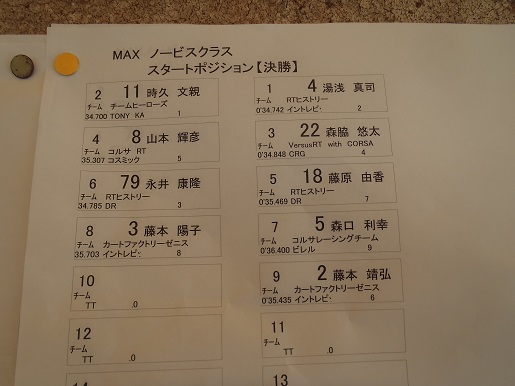 MAX ノービスクラス
スタートポジション【決勝】
2 11 時久 文親
チーム チームヒーローズ
34.700 TONY KA 1
1 4 湯浅 真司
チーム RTヒストリー
0'34.742 イントレピ・ 2
4 8 山本 輝彦
チーム コルサ RT
35.307 コスミック 5
3 22 森脇 悠太
チーム VersusRT with CORSA
0'34.848 CRG 4
6 79 永井 康隆
チーム RTヒストリー
34.785 DR 3
5 18 藤原 由香
チーム RTヒストリー
0'35.469 DR 7
8 3 藤本 陽子
チーム カートファクトリーゼニス
35.703 イントレピ・ 8
7 5 森口 利幸
チーム コルサレーシングチーム
0'36.400 ビレル 9
10
チーム
TT .0
9 2 藤本 靖弘
チーム カートファクトリーゼニス
0'35.435 イントレピ・ 6
12
チーム
TT .0
11
チーム
TT .0
14
13